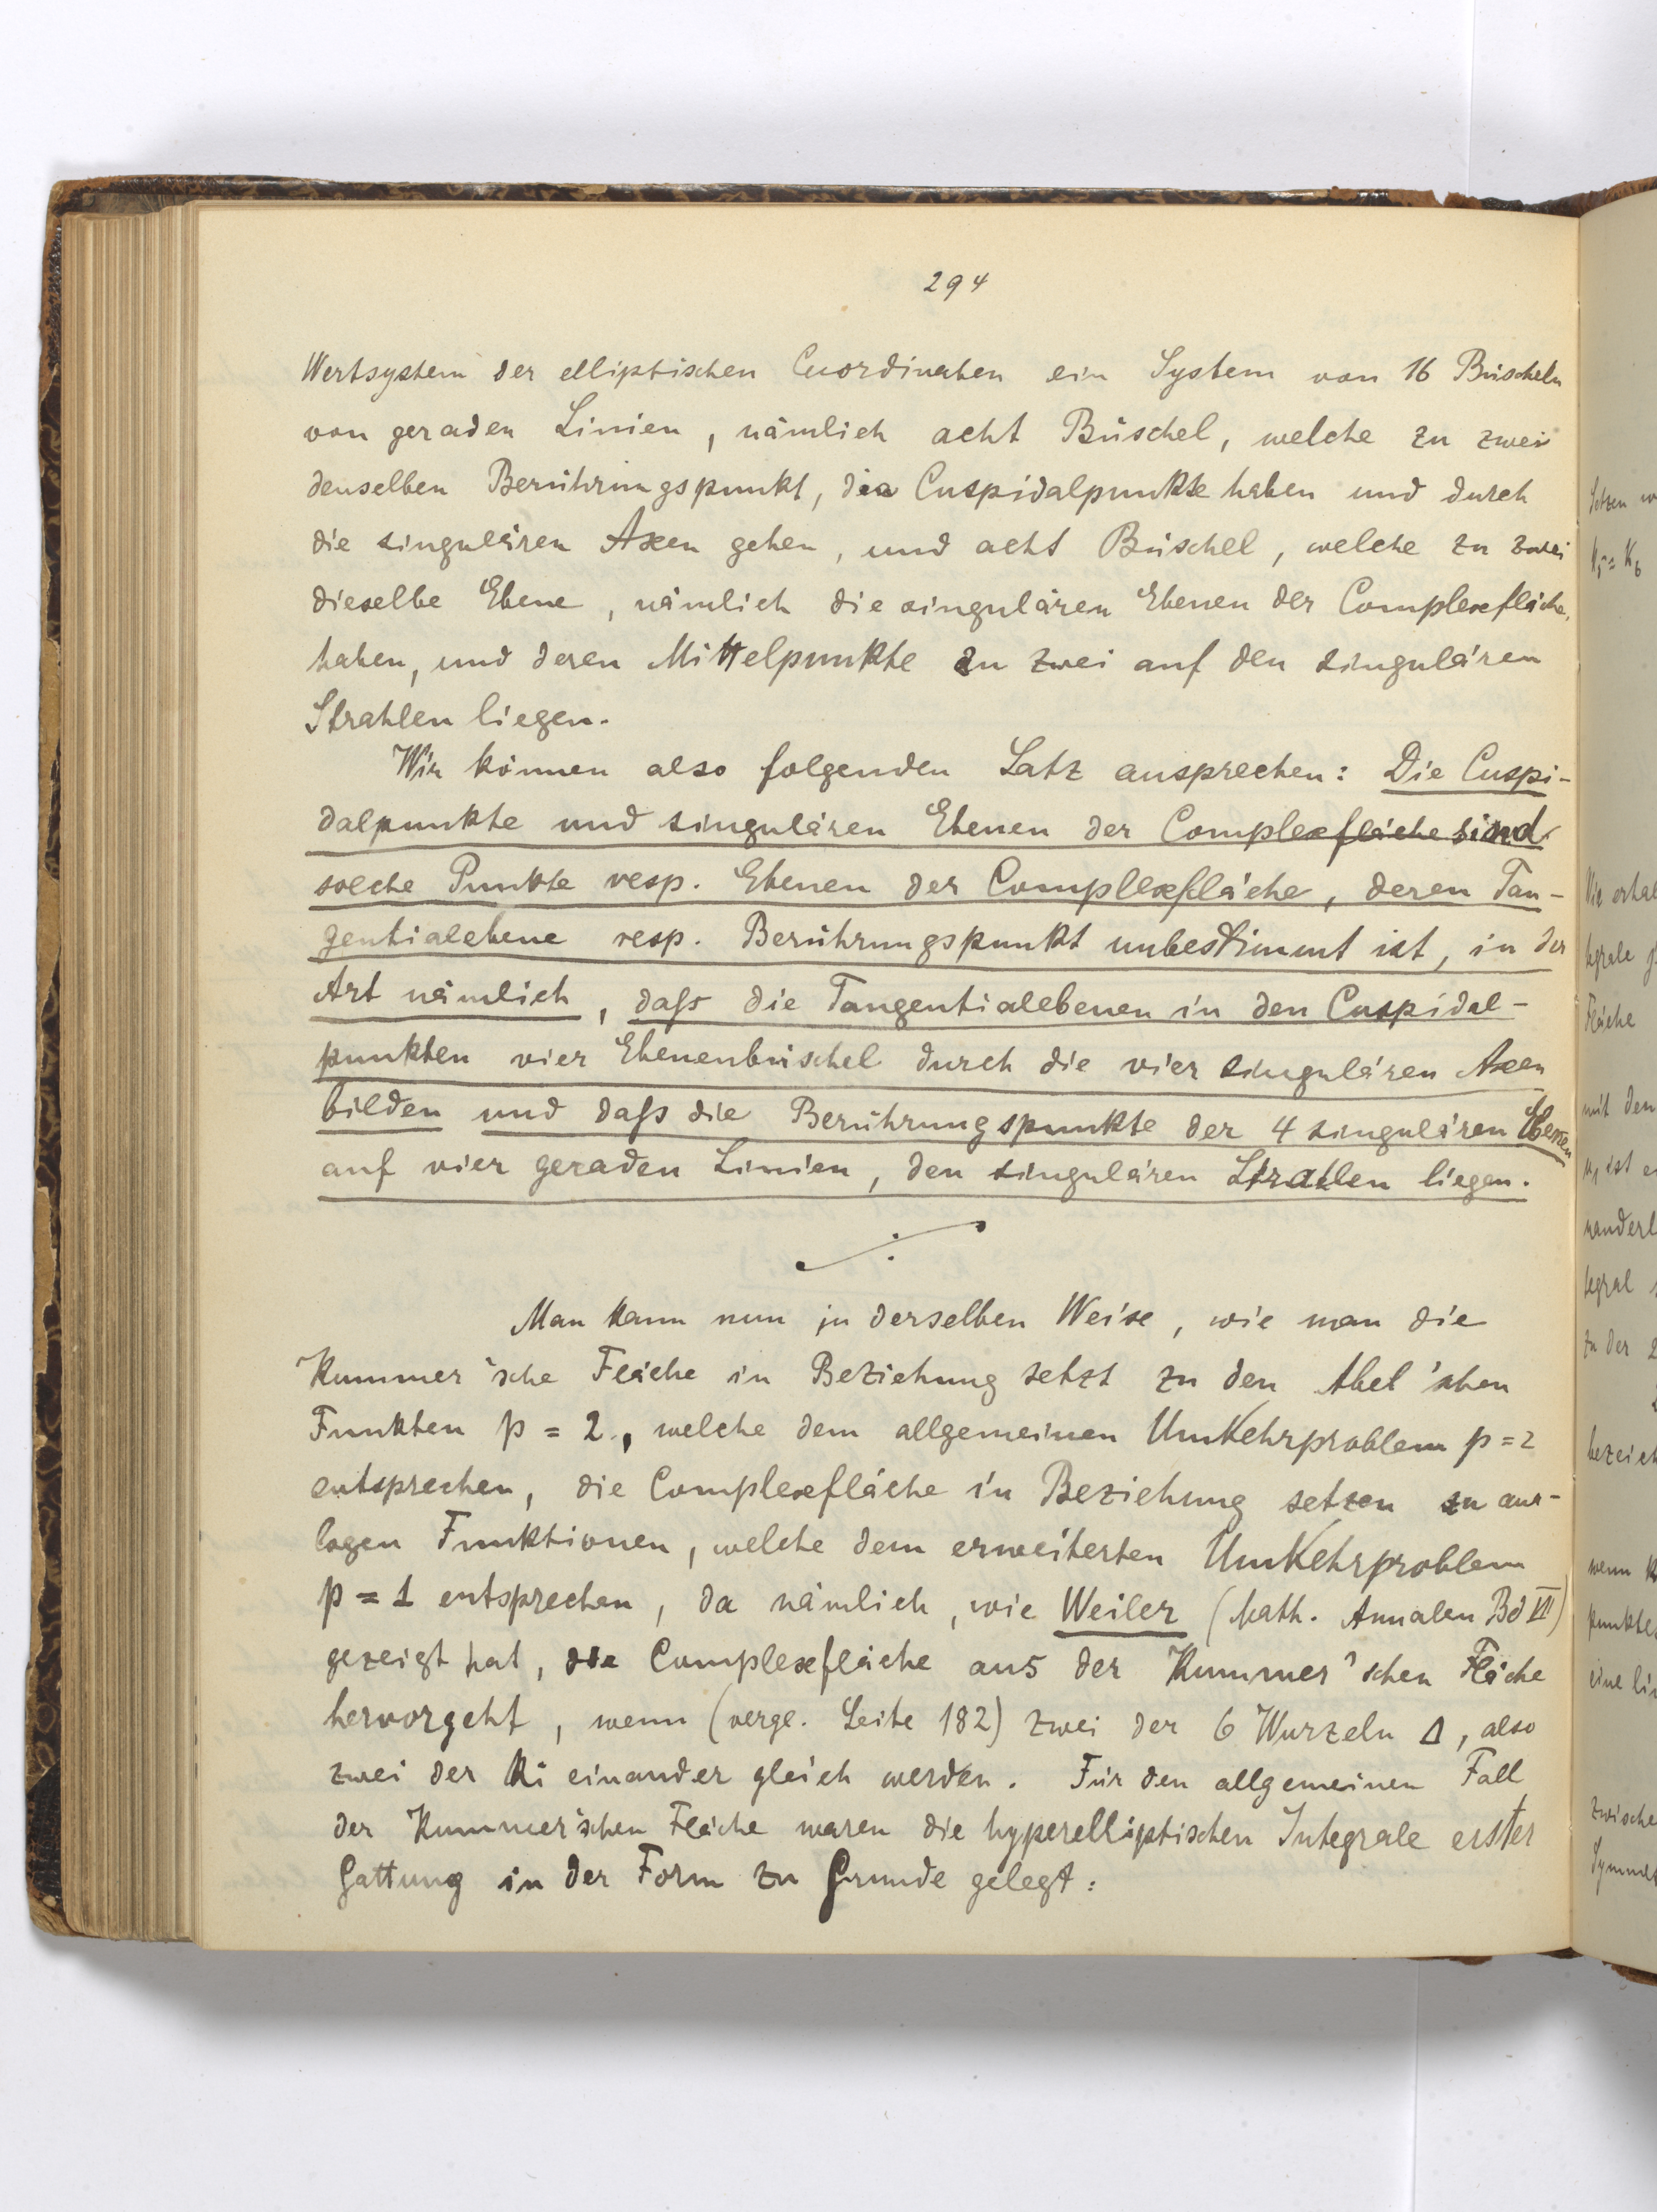 294
Wertsystem der elliptischen Cuordinaten ein System von 16 Büscheln
von geraden Linien, nämlich acht Büschel, welche zu zwei
denselben Berührungspunkt, die Cuspidalpunkte haben und durch
die singulären Axen gehen, und acht Büschel, welche zu zwei
dieselbe Ebene, nämlich die singulären Ebenen der Complexfläche,
haben, und deren Mittelpunkte zu zwei auf den singulären
Strahlen liegen.
Wir können also folgenden Satz aussprechen: Die Cuspi-
dalpunkte und singulären Ebenen der Complexfläche sind
solche Punkte resp. Ebenen der Complexfläche, deren Tan-
gentialebene resp. Berührungspunkt unbestimmt ist, in der
Art nämlich, daß die Tangentialebenen in den Cuspidal-
punkten vier Ebenenbüschel durch die vier singulären Axen
bilden und daß die Berührungspunkte der 4 singulären Ebenen
auf vier geraden Linien, den singulären Strahlen liegen.
Man kann nun in derselben Weise, wie man die
Kummer'sche Fläche in Beziehung setzt zu den Abel'schen
Funkten p = 2, welche dem allgemeinen Umkehrproblem p = 2
entsprechen, die Complexfläche in Beziehung setzen zu ana-
logen Funktionen, welche dem erweiterten Umkehrproblem
p = 1 entsprechen, da nämlich, wie Weiler (Math. Annalen Bd VII)
gezeigt hat, die Complexfläche aus der Kummer'schen Fläche
hervorgeht, wenn (vergl. Seite 182) zwei der 6 Wurzeln Δ, also
zwei der Ki einander gleich werden. Für den allgemeinen Fall
der Kummer'schen Fläche waren die hyperelliptischen Integrale erster
Gattung in der Form zu Grunde gelegt:
Setzen
K5 = K6
Wir erhal
tegrale
Fläche
mit den
ist
nanderl
tegral
zu der 2
bezeich
wenn
punkte
eine lin
zwische
Symmet